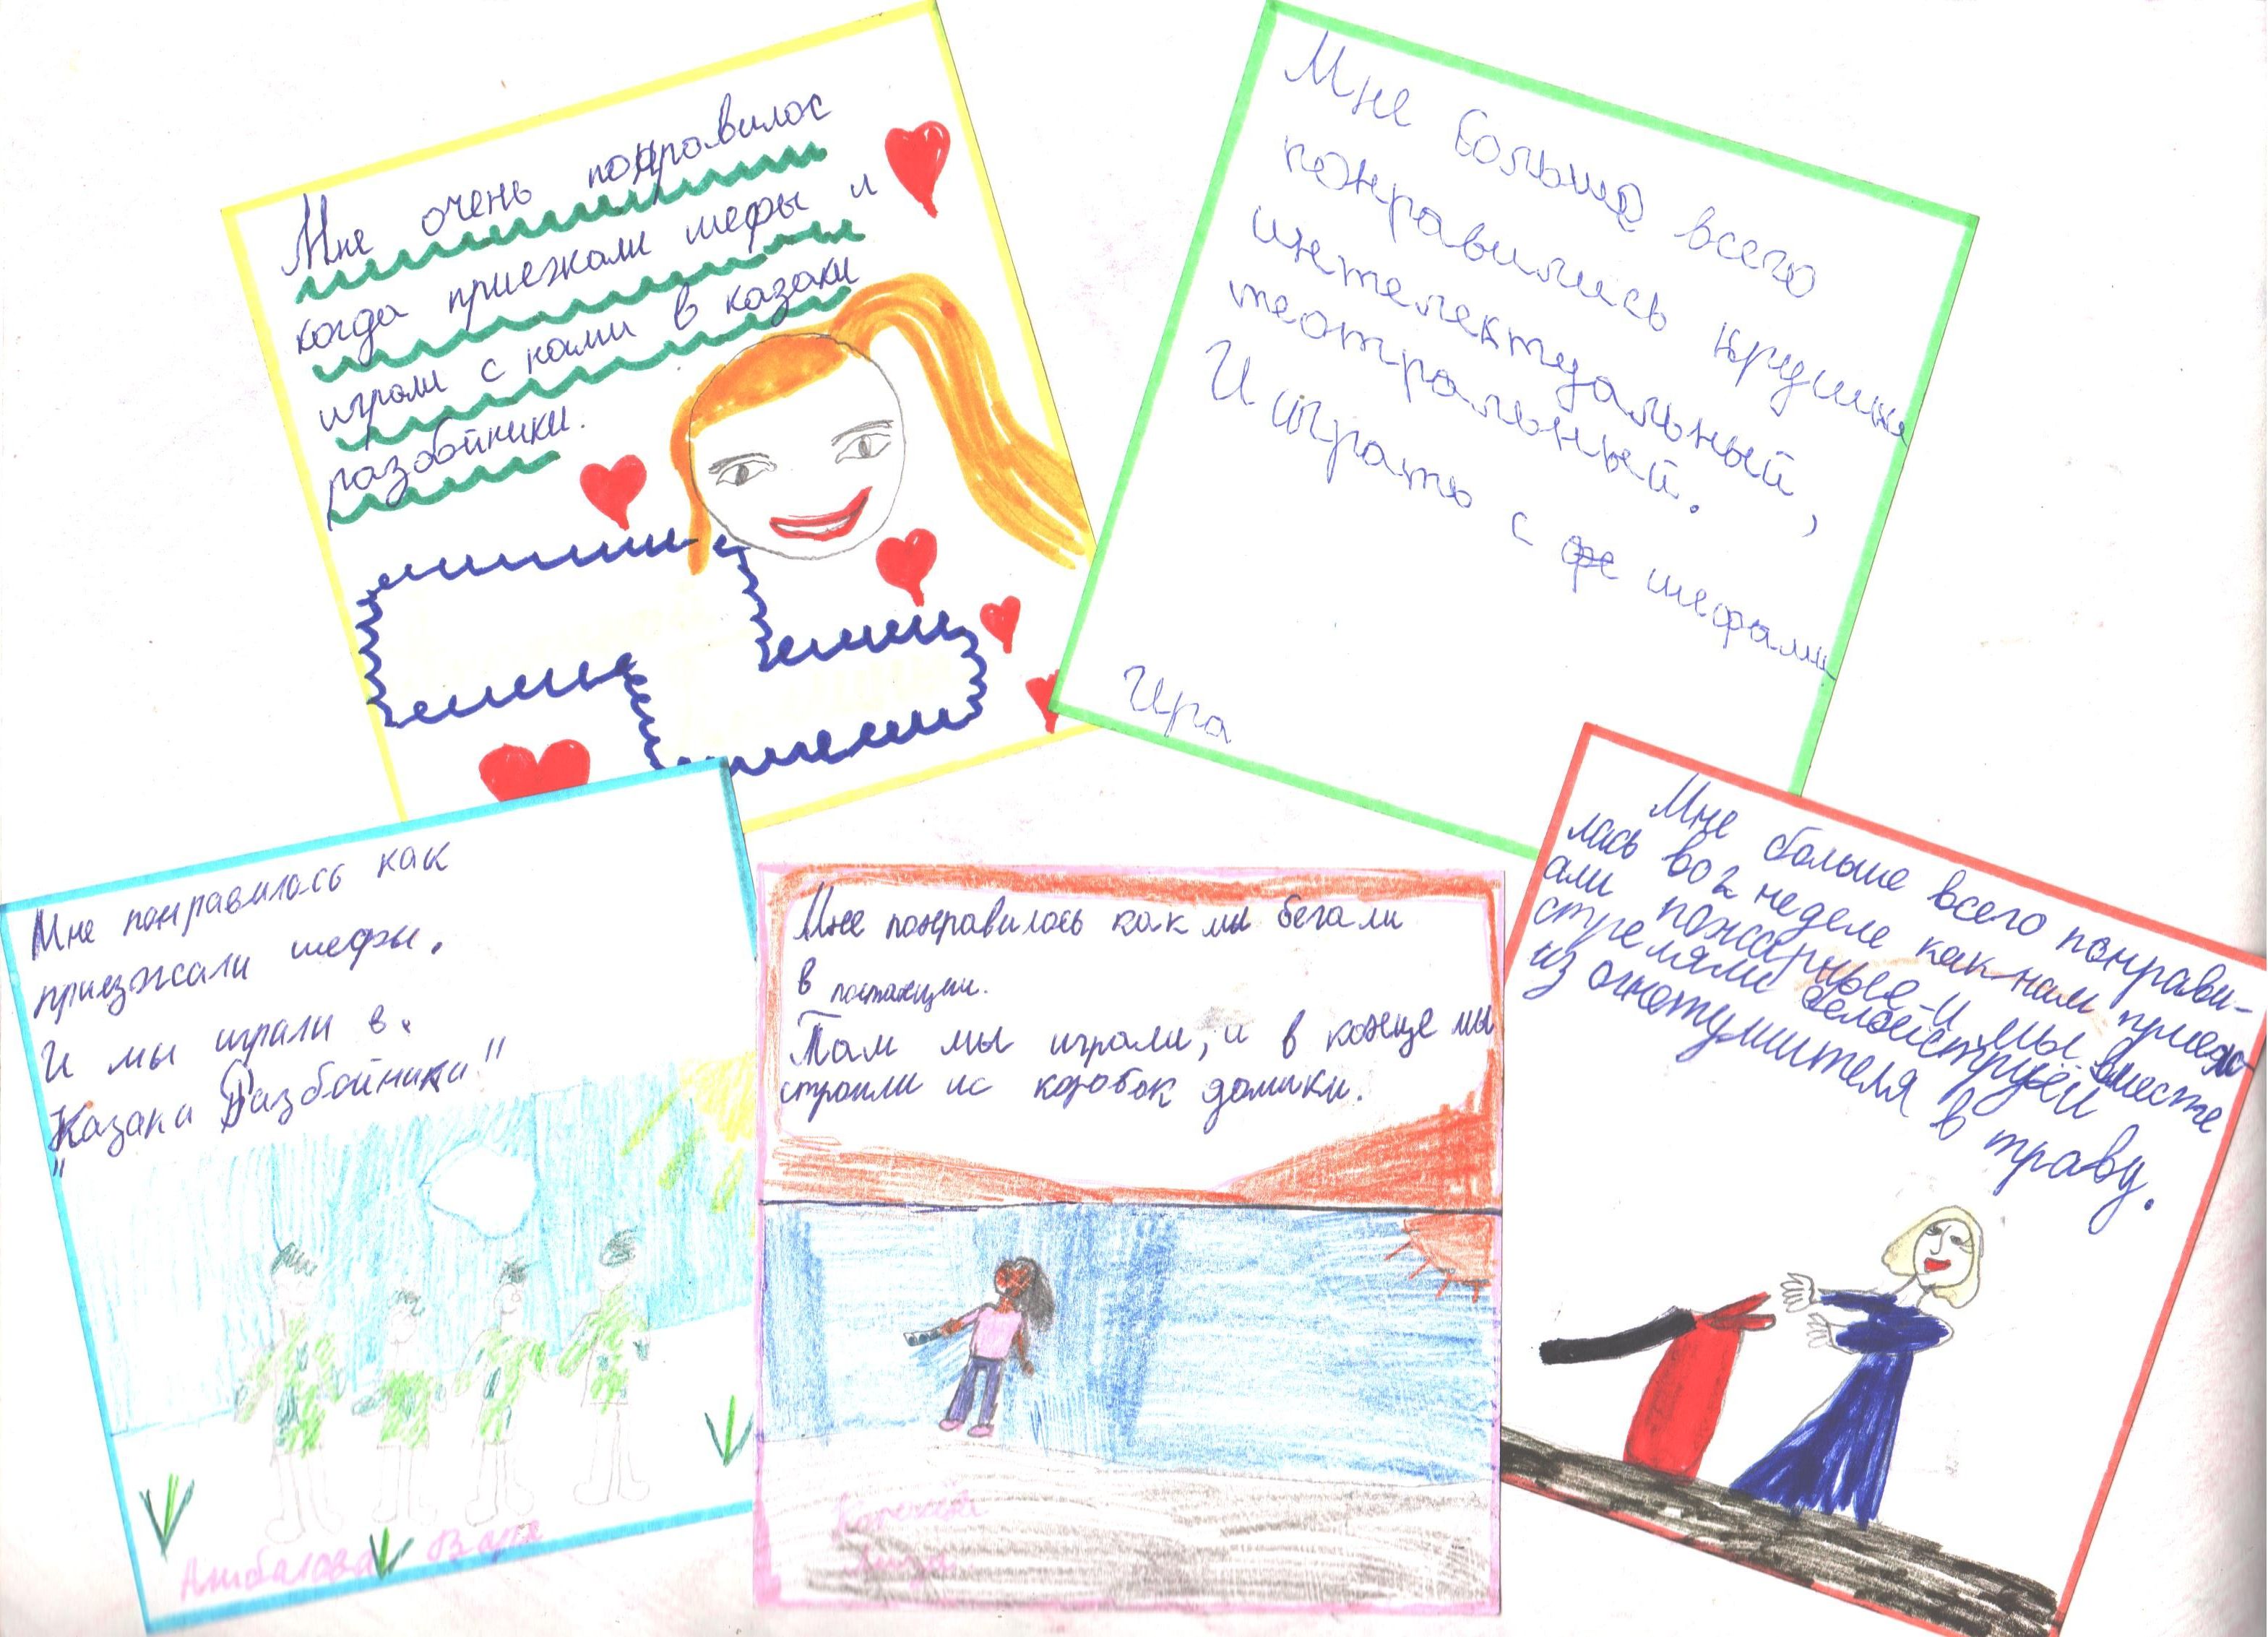 Мне очень понравилос
когда приежали шефы и
играли с нами в казаки
разобойники.
Мне больше всего
понравились кружки
интелектуальный,
театральный.
И играть с шефами
Ира
Мне понравилось как
приезжали шефы.
И мы играли в.
"Казаки Разбойники"
Амбалова Варя
Мне понравилось как мы бегали
в
Там мы играли, и в конце мы
строили ис коробок домики.
Лиза
Мне больше всего понрави-
лась во 2 неделе как нам приеха-
али пожарные и мы вместе
стреляли белой струёй
из огнотушителя в траву.